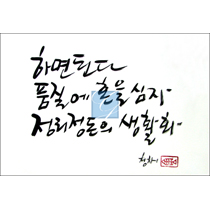 하면된다
품질에 혼을 심자
정리정돈의 생활화